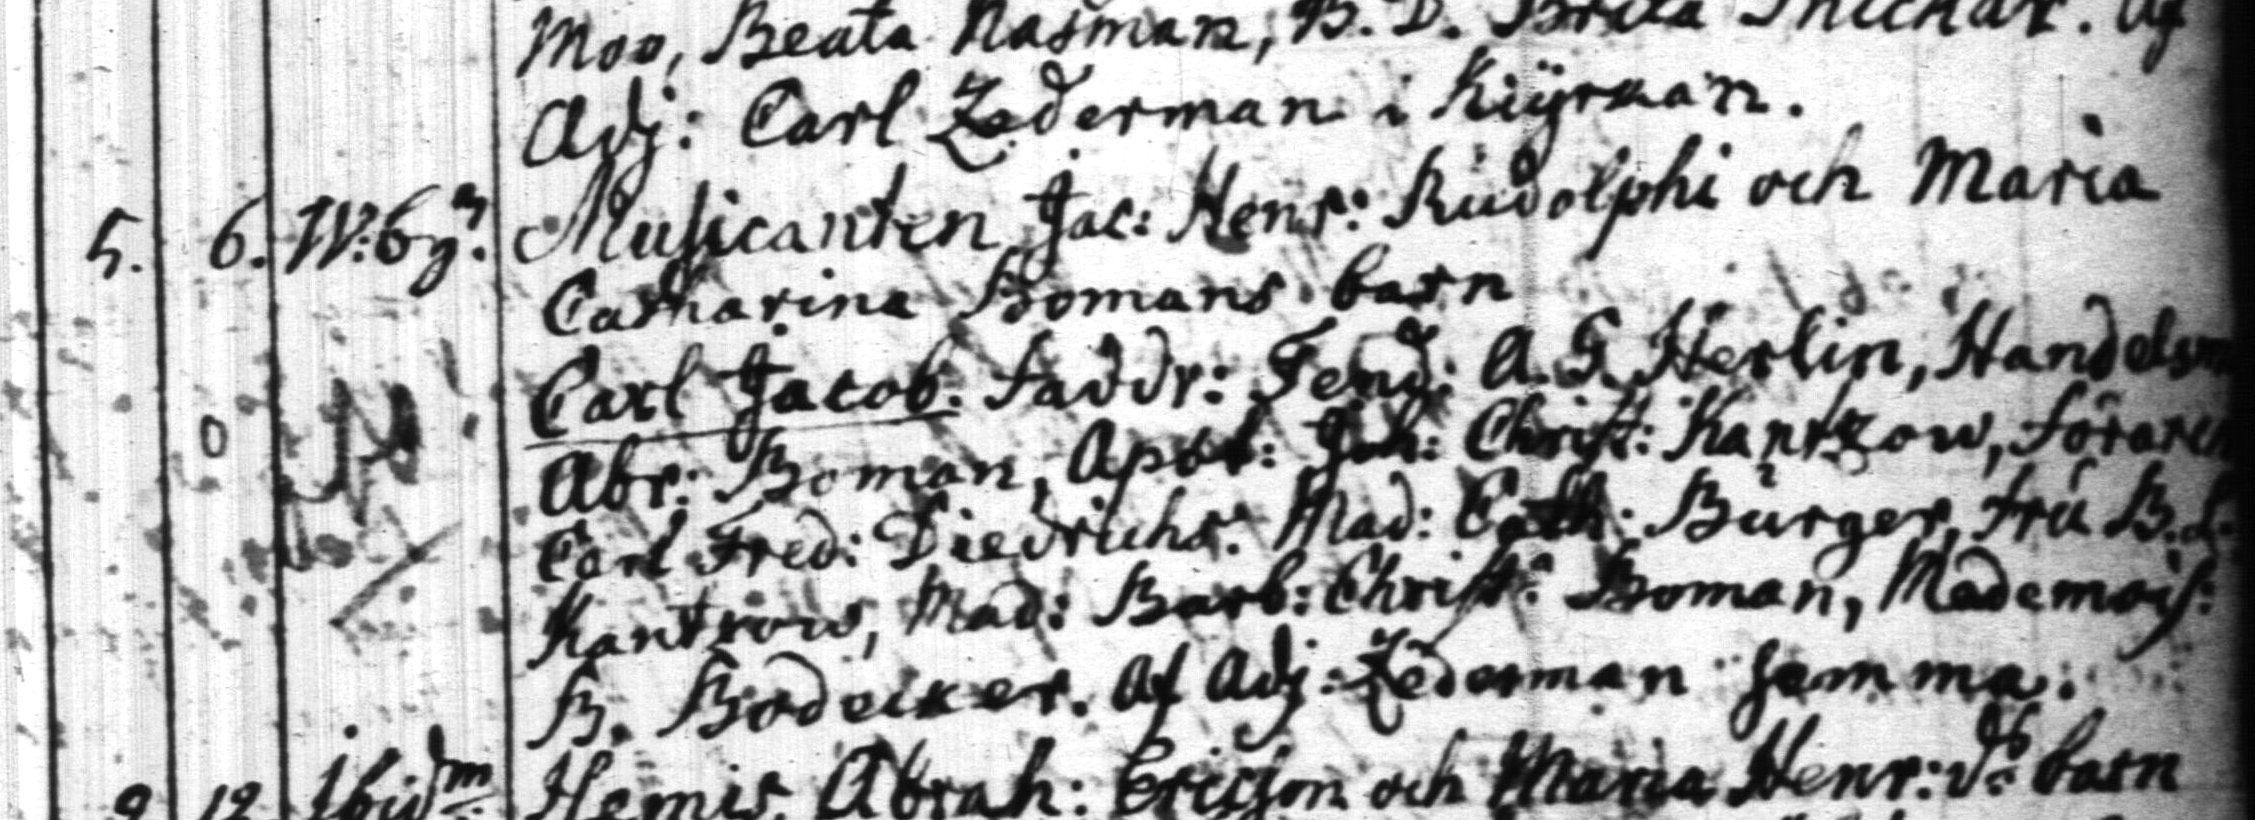 Moo, Beata Nasman, B. D. Brita Thichar. Af
Adj: Carl Zederman i Kiÿrkan.
5. 6. W:by. Musicanten Jac: Henr: Rudolphi och Maria
Catharina Bomans barn
Carl Jacob. Faddr: Fend: A. G. Herlin, Handelsm
Abr: Boman, Apot: Joh: Christ: Kantzow, Föraren
Carl Fred: Diedrichs. Mad: Cath: Burger, Fru B. L.
Kantzow, Mad: Barb: Christ: Boman, Mademois:
B. Bodecker. Af Adj: Zederman hemma.
9 12 Ibid:m Hemis. Abrah: Ericsson och Maria Henr: ds barn